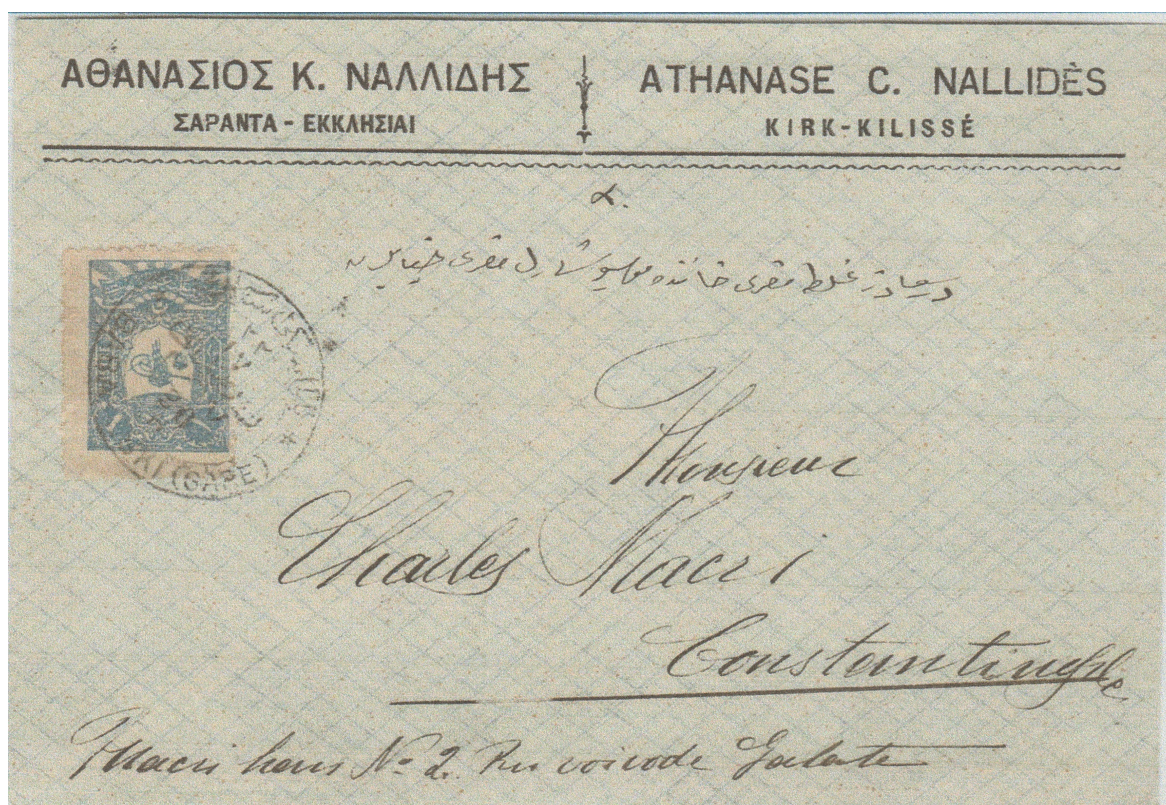 ΑΘΑΝΑΣΙΟΣ Κ. ΝΑΛΛΙΔΗΣ
ΣΑΡΑΝΤΑ - ΕΚΚΛΗΣΙΑΙ
ATHANASE C. NALLIDÈS
KIRK-KILISSÉ
α.
(GARE)
Monsieur
Charles Macri
Constantinople
Macri han No 2. Rue voivode Galata